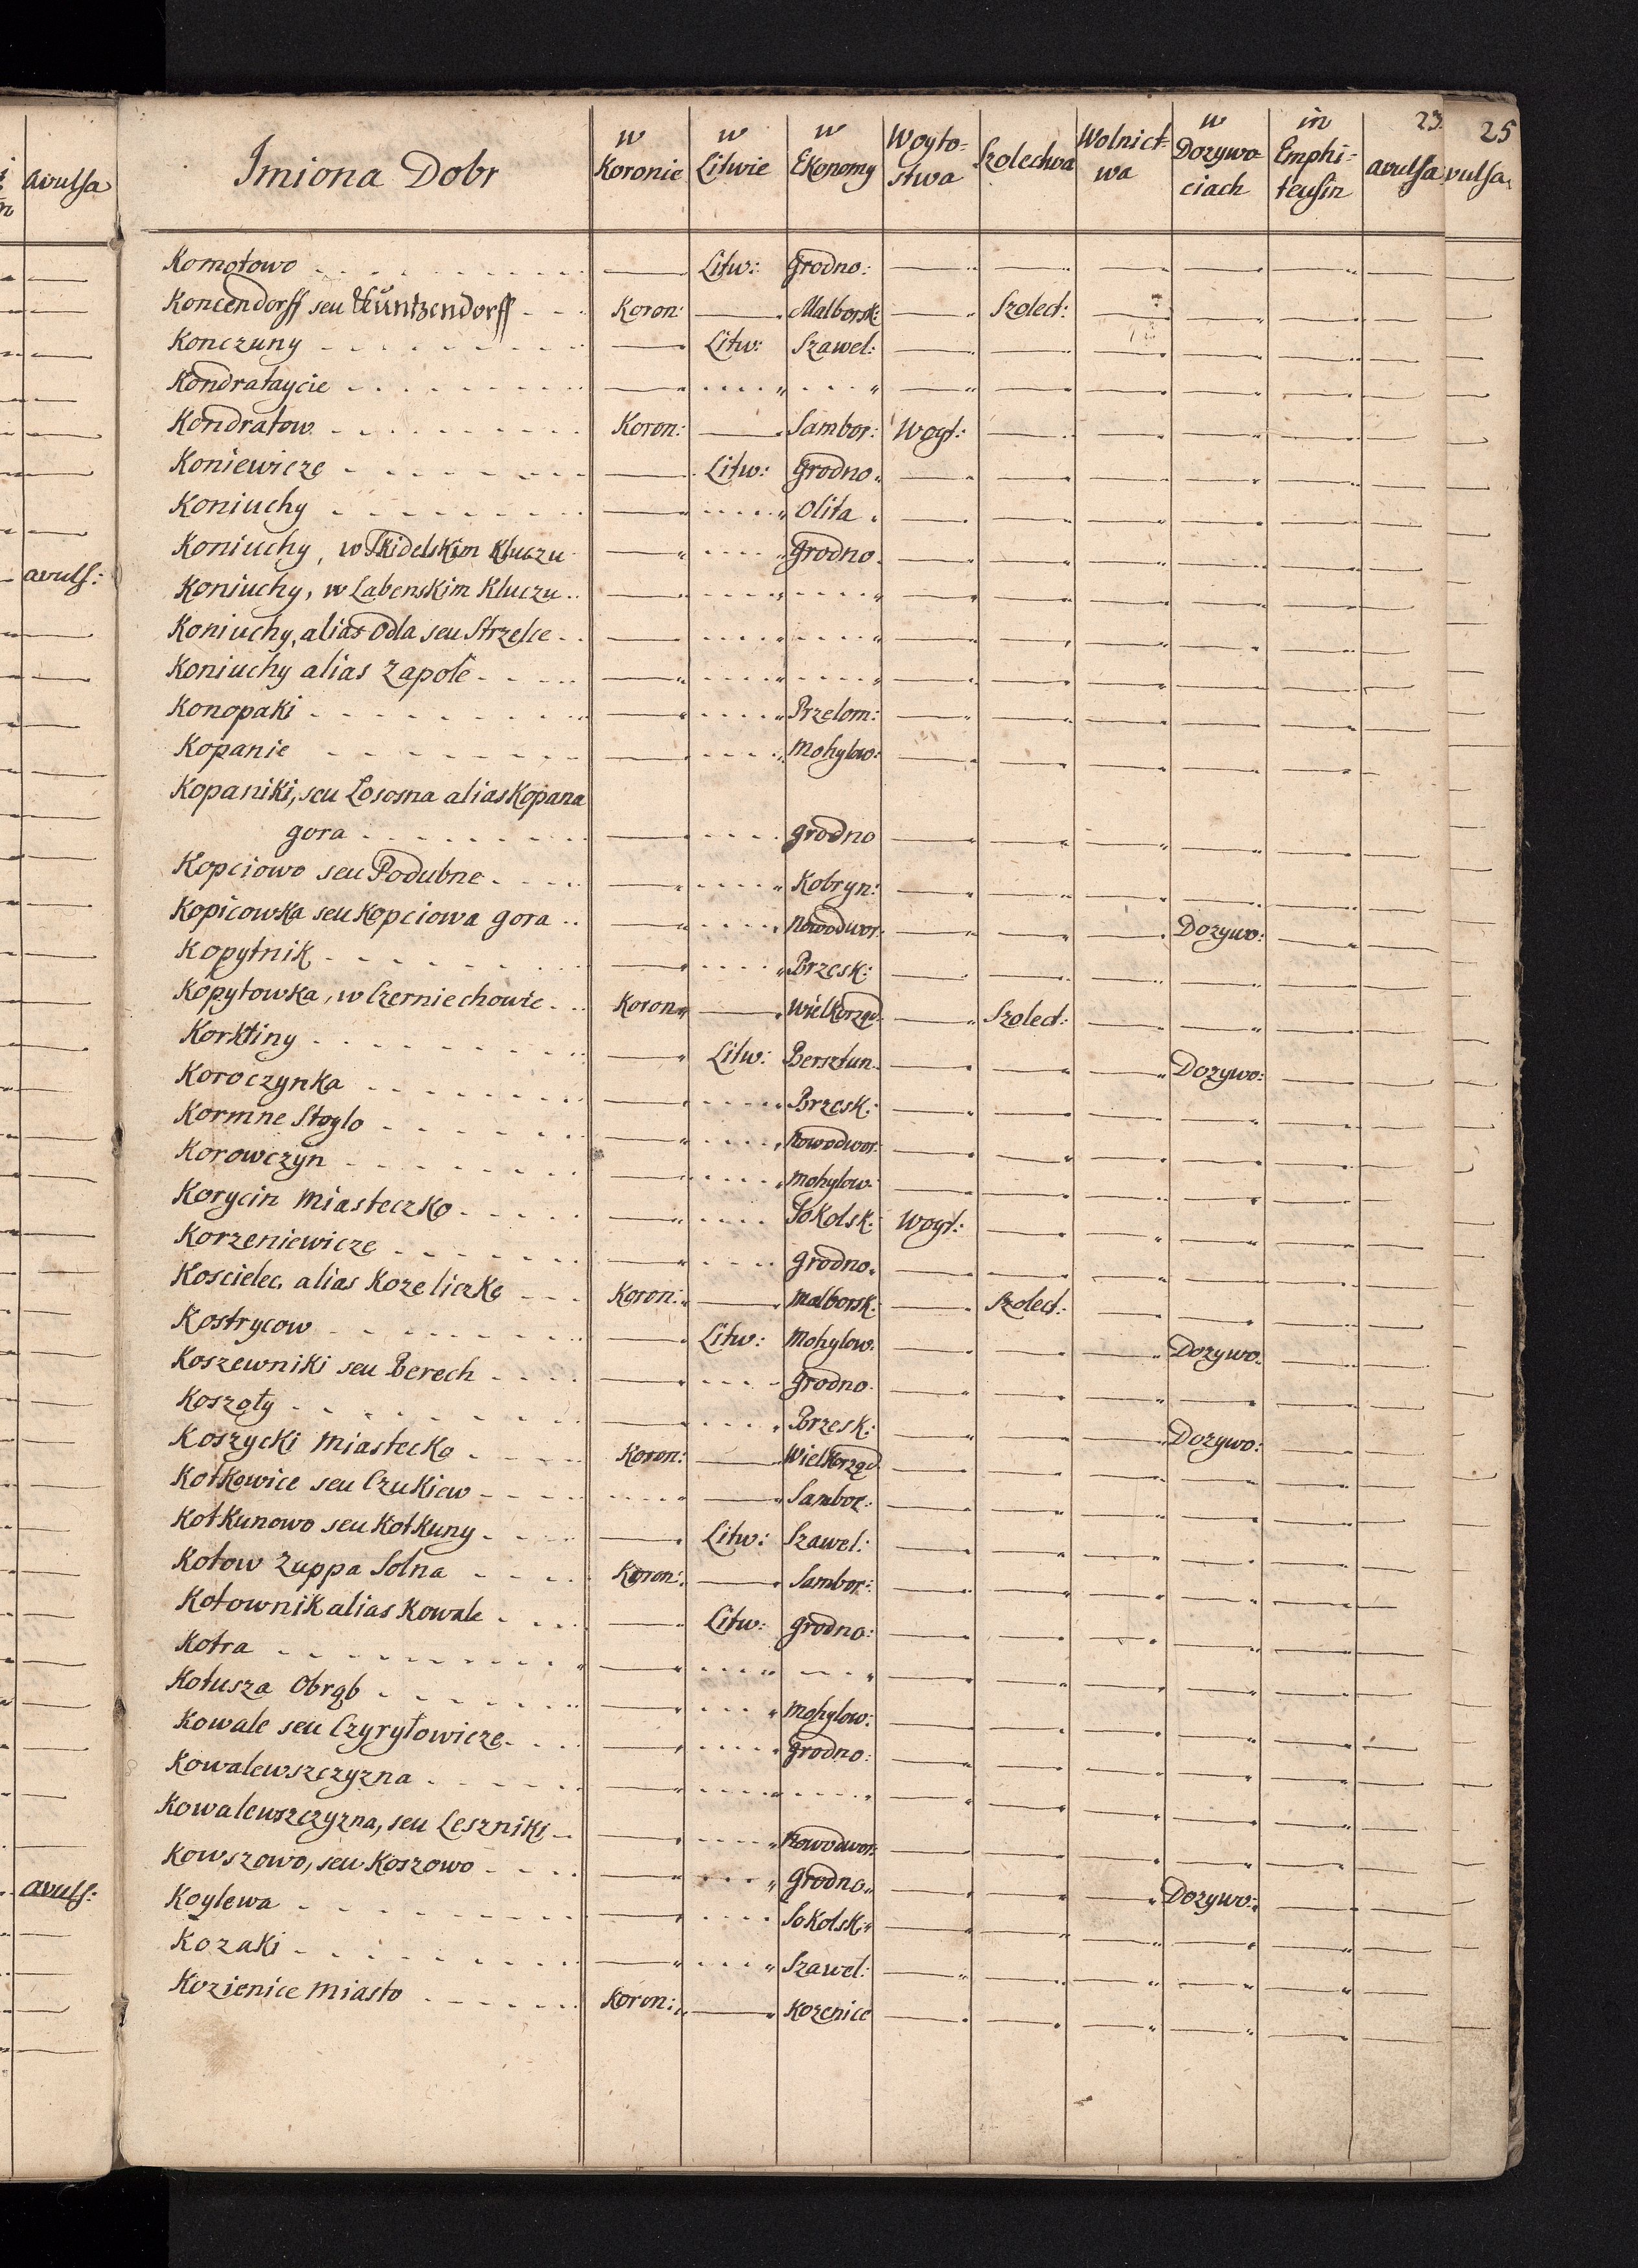 avulsa
avuls:
avuls:
23. 25
Imiona Dobr | w Koronie | w Litwie | w Ekonomy | Woyto-stwa | Szolectwa | Wolnict-wa | w Dozywo-ciach | in Emphi-teusin | avulsa | vulsa
Komotowo - Litw: Grodno:
Koncendorff seu Küntzendorff - Koron: Malborsk: Szolect:
Konczuny - Litw: Szawel:
Kondrataycie
Kondratow - Koron: Sambor: Woyt:
Koniewicze - Litw: Grodno.
Koniuchy - Olita
Koniuchy, w Skidelskim Kluczu - Grodno
Koniuchy, w Labenskim Kluczu
Koniuchy, alias Odla seu Strzelce
Koniuchy alias Zapole
Konopaki - Przelom:
Kopanie - Mohylow:
Kopaniki, seu Lososna alias Kopana
gora - grodno
Kopciowo seu Podubne - Kobryn:
Kopicowka seu Kopciowa gora - Nowodwor: Dozywo:
Kopytnik - Brzesk:
Kopytowka, w Czerniechowie - Koron: Wielkorząd Szolect:
Korktiny - Litw: Bersztun. Dozywo:
Koroczynka - Brzesk:
Kormne Stoglo - Nowodwor:
Korowczyn - Mohylow:
Korycin Miasteczko - Sokolsk: Woyt:
Korzeniewicze - grodno.
Koscielec alias Kozeliczke - Koron: Malborsk: Szolect:
Kostrycow - Litw: Mohylow. Dozywo.
Koszewniki seu Berech - Grodno.
Koszoły - Brzesk: Dozywo:
Koszycki Miastecko - Koron: Wielkorząd
Kotkowice seu Czukiew - Sambor:
Kotkunowo seu Kotkuny - Litw: Szawel:
Kotow Zuppa Solna - Koron: Sambor:
Kotownik alias Kowale - Litw: Grodno:
Kotra
Kotusza Obrąb - Mohylow:
Kowale seu Czyrytowicze - Grodno:
Kowalewszczyzna
Kowalewszczyzna, seu Leszniki - Nowodwor:
Kowszowo, seu Koszowo - Grodno Dozywo:
Koylewa - Sokolsk:
Kozaki - Szawel:
Kozienice Miasto - Koron: Kozenice